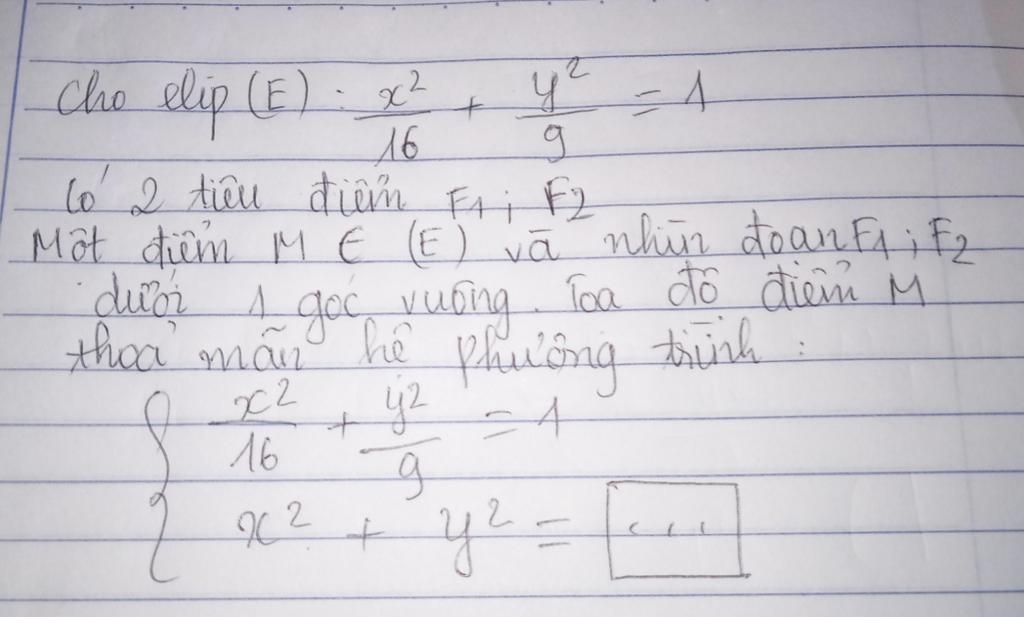 Cho elip (E): x²/16 + y²/9 = 1
Có 2 tiêu điểm F1; F2
Một điểm M ∈ (E) và nhìn đoạn F1; F2
dưới 1 góc vuông. Tọa độ điểm M
thoả mãn hệ phương trình:
x²/16 + y²/9 = 1
x² + y² = ...